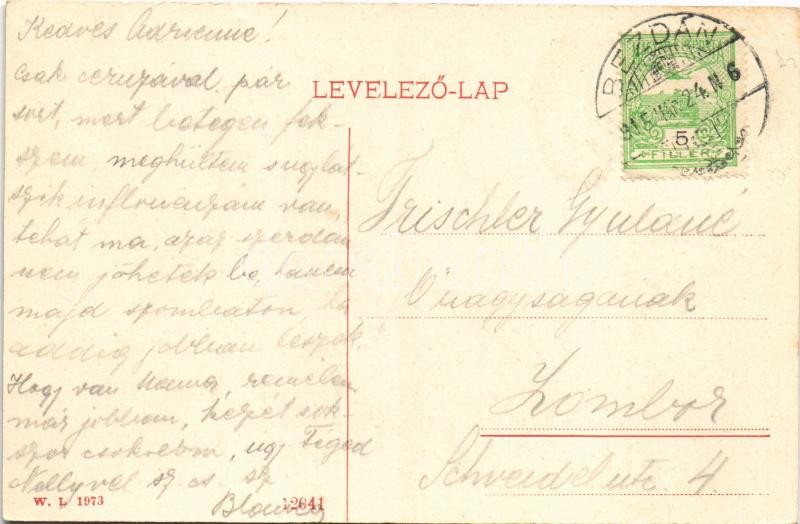 Kedves Adrienne!
Csak ceruzával pár
sort, mert betegen fek-
szem, meghültem s ugylát-
szik influenzám van,
tehat ma, azaz szerdán
nem jöhetek be, hanem
majd szombaton, ha
addig jobban leszek.
Hogy van Mama, remélem
már jobban, kezét sok-
szor csokolom, ugy Téged
Nellyvel sz cs. sz
W. L 1973
12641
LEVELEZŐ-LAP
BEZDÁN
915 MÁR 24. N 6
5
FILLÉR
Trischler Gyuláné
Őnagyságának
Zombor
Schveidel utc 4